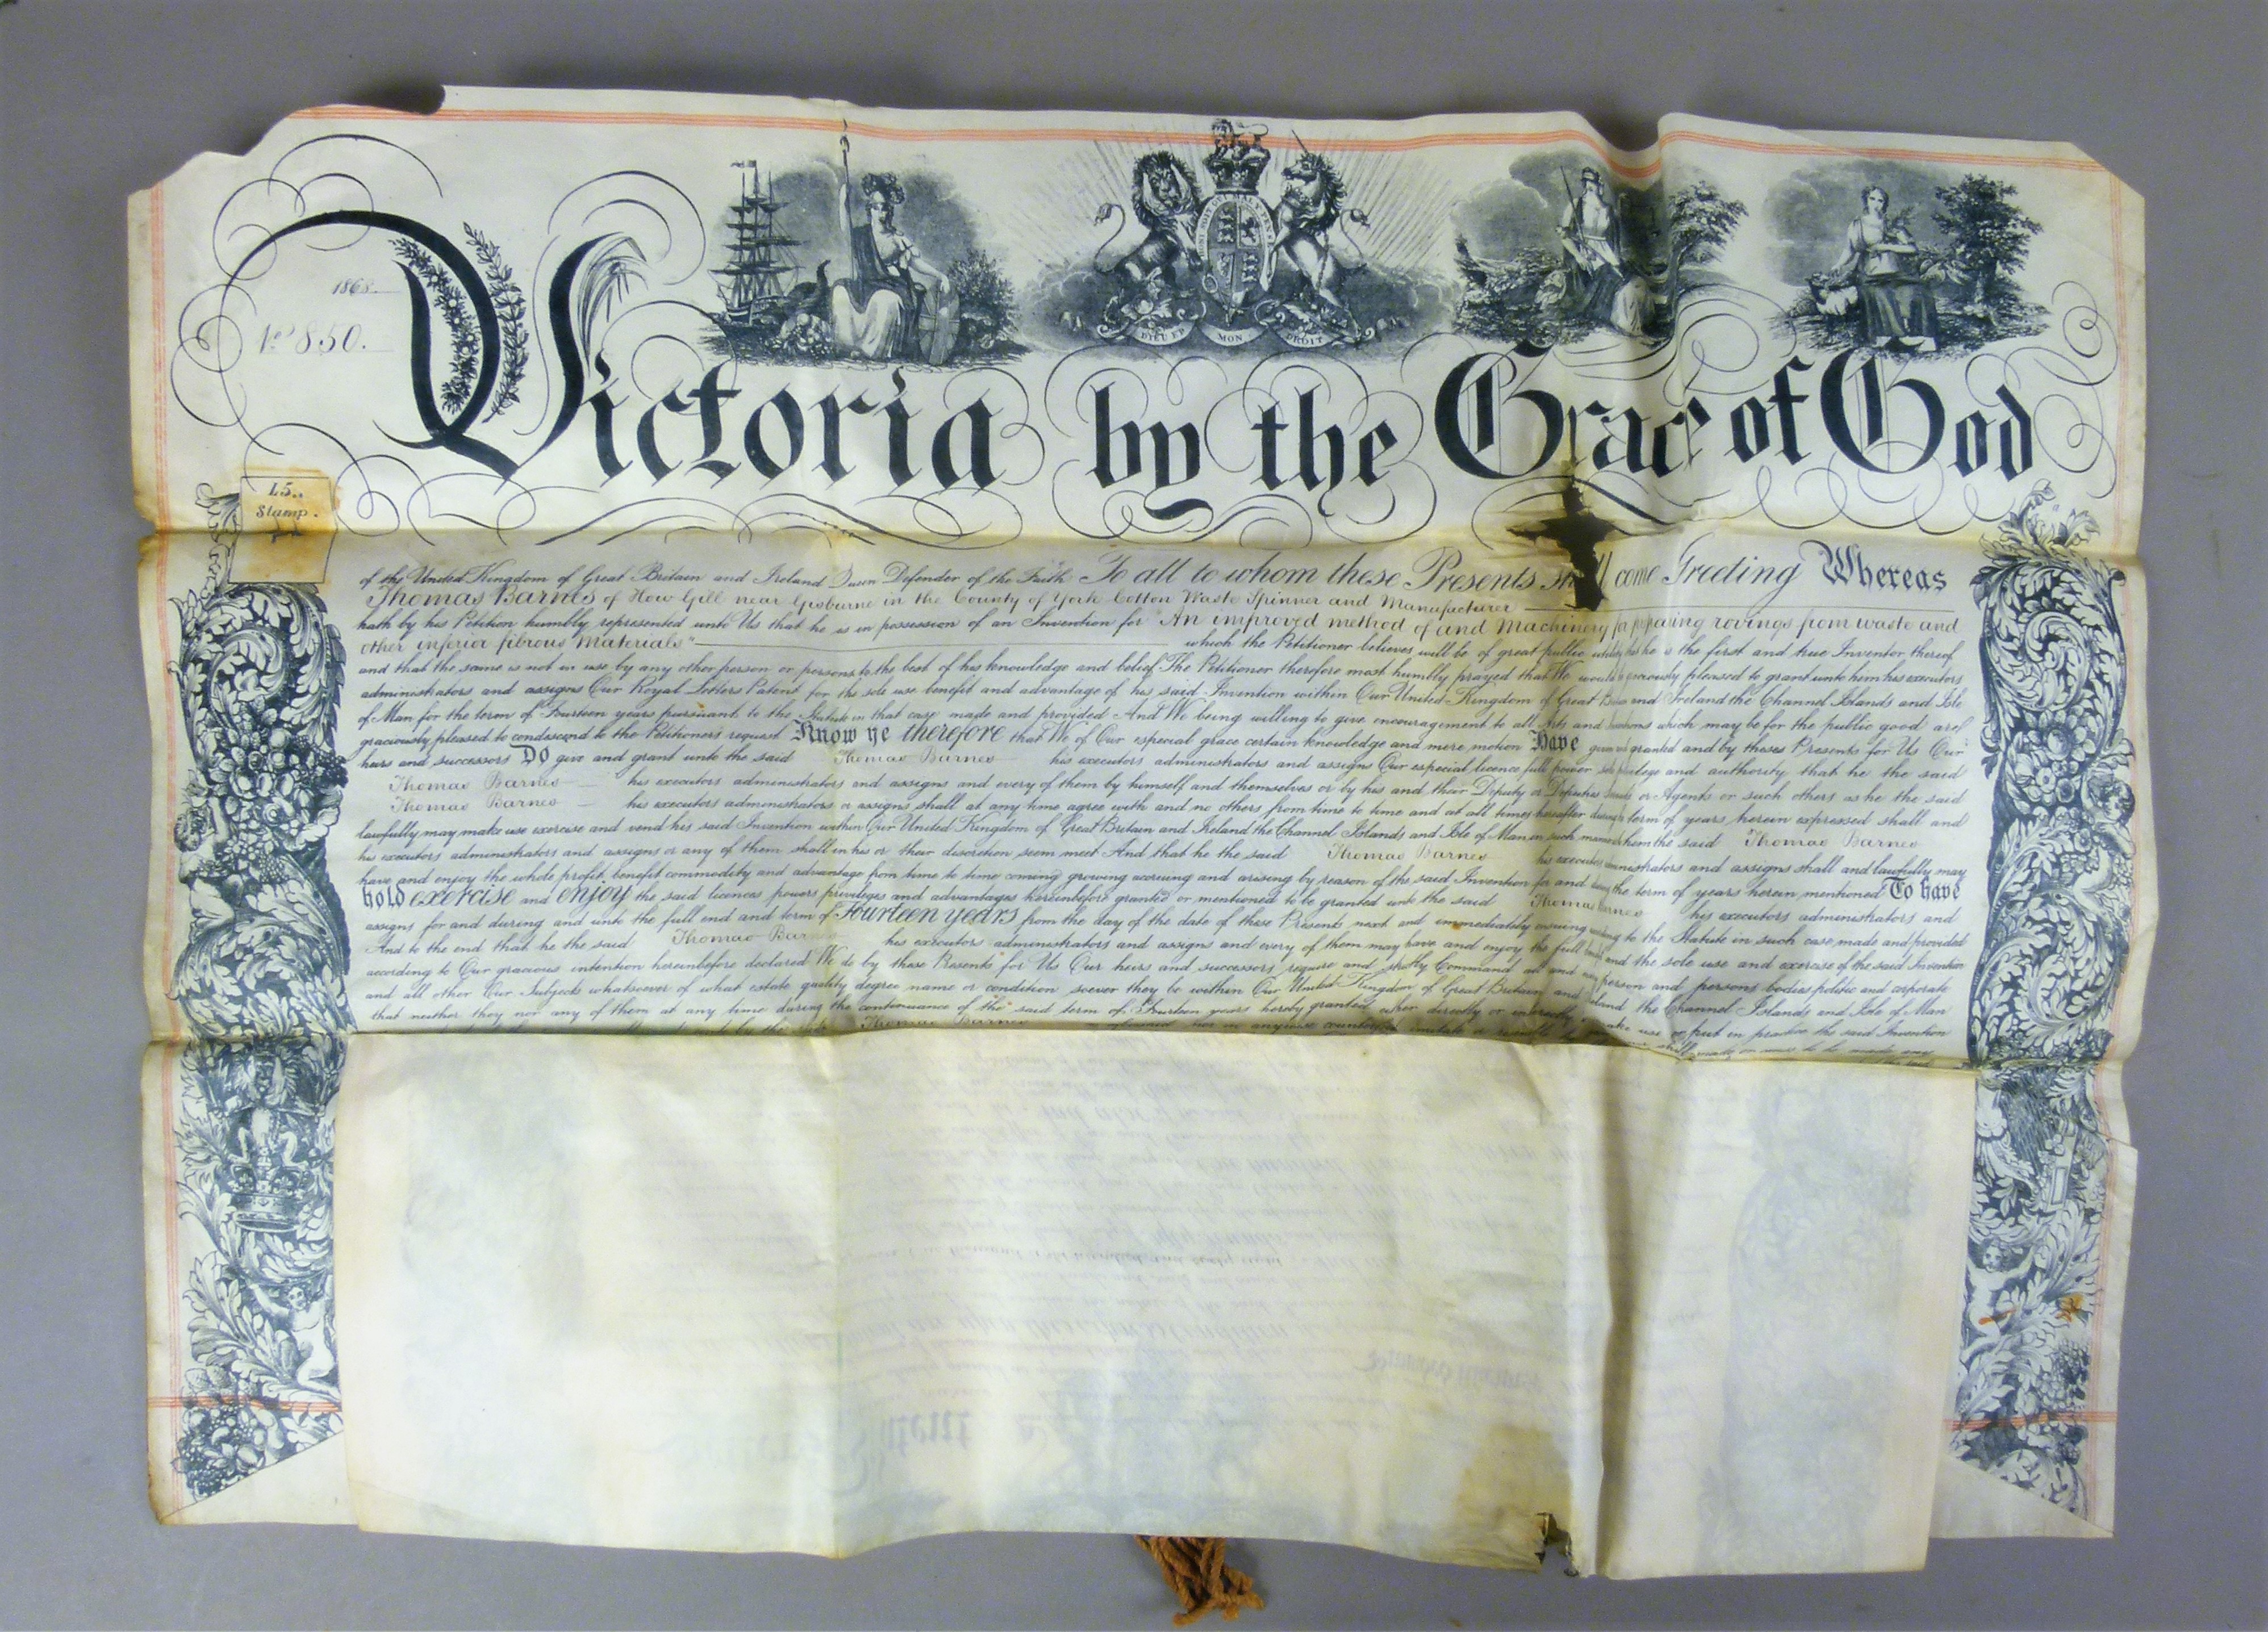 1868
No. 850.
HONI SOIT QUI MAL Y PENSE
DIEU ET MON DROIT
Victoria by the Grace of God
L5.
Stamp.
of the United Kingdom of Great Britain and Ireland Queen Defender of the Faith To all to whom these Presents shall come Greeting Whereas
Thomas Barnes of How Gill near Gisburne in the County of York Cotton Waste Spinner and Manufacturer
hath by his Petition humbly represented unto Us that he is in possession of an Invention for "An improved method of and Machinery for preparing rovings from waste and
other inferior fibrous Materials" which the Petitioner believes will be of great public utility that he is the first and true Inventor thereof
and that the same is not in use by any other person or persons to the best of his knowledge and belief The Petitioner therefore most humbly prayed that We would graciously pleased to grant unto him his executors
administrators and assigns Our Royal Letters Patent for the sole use benefit and advantage of his said Invention within Our United Kingdom of Great Britain and Ireland the Channel Islands and Isle
of Man for the term of Fourteen years pursuant to the Statute in that case made and provided And We being willing to give encouragement to all Arts and Inventions which may be for the public good are
graciously pleased to condescend to the Petitioner's request Know ye therefore that We of Our especial grace certain knowledge and mere motion Have given and granted and by these Presents for Us Our
heirs and successors Do give and grant unto the said Thomas Barnes his executors administrators and assigns Our especial licence full power sole privilege and authority that he the said
Thomas Barnes his executors administrators and assigns and every of them by himself and themselves or by his and their Deputy or Deputies Servants or Agents or such others as he the said
Thomas Barnes his executors administrators or assigns shall at any time agree with and no others from time to time and at all times hereafter during term of years herein expressed shall and
lawfully may make use exercise and vend his said Invention within Our United Kingdom of Great Britain and Ireland the Channel Islands and Isle of Man in such manner to him the said Thomas Barnes
his executors administrators and assigns or any of them shall in his or their discretion seem meet And that he the said Thomas Barnes his executors administrators and assigns shall and lawfully may
have and enjoy the whole profit benefit commodity and advantage from time to time coming growing accruing and arising by reason of the said Invention for and during the term of years herein mentioned To have
hold exercise and enjoy the said licences powers privileges and advantages hereinbefore granted or mentioned to be granted unto the said Thomas Barnes his executors administrators and
assigns for and during and unto the full end and term of Fourteen years from the day of the date of these Presents next and immediately ensuing according to the Statute in such case made and provided
And to the end that he the said Thomas Barnes his executors administrators and assigns and every of them may have and enjoy the full benefit and the sole use and exercise of the said Invention
according to Our gracious intention hereinbefore declared We do by these Presents for Us Our heirs and successors require and strictly Command all and every person and persons bodies politic and corporate
and all other Our Subjects whatsoever of what estate quality degree name or condition soever they be within Our United Kingdom of Great Britain and Ireland the Channel Islands and Isle of Man
that neither they nor any of them at any time during the continuance of the said term of Fourteen years hereby granted either directly or indirectly make use or put in practice the said Invention
Thomas Barnes